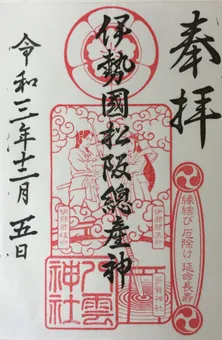 奉拝
伊勢國松阪總産神
令和三年十二月五日
縁結び 厄除け 延命長寿
八雲神社